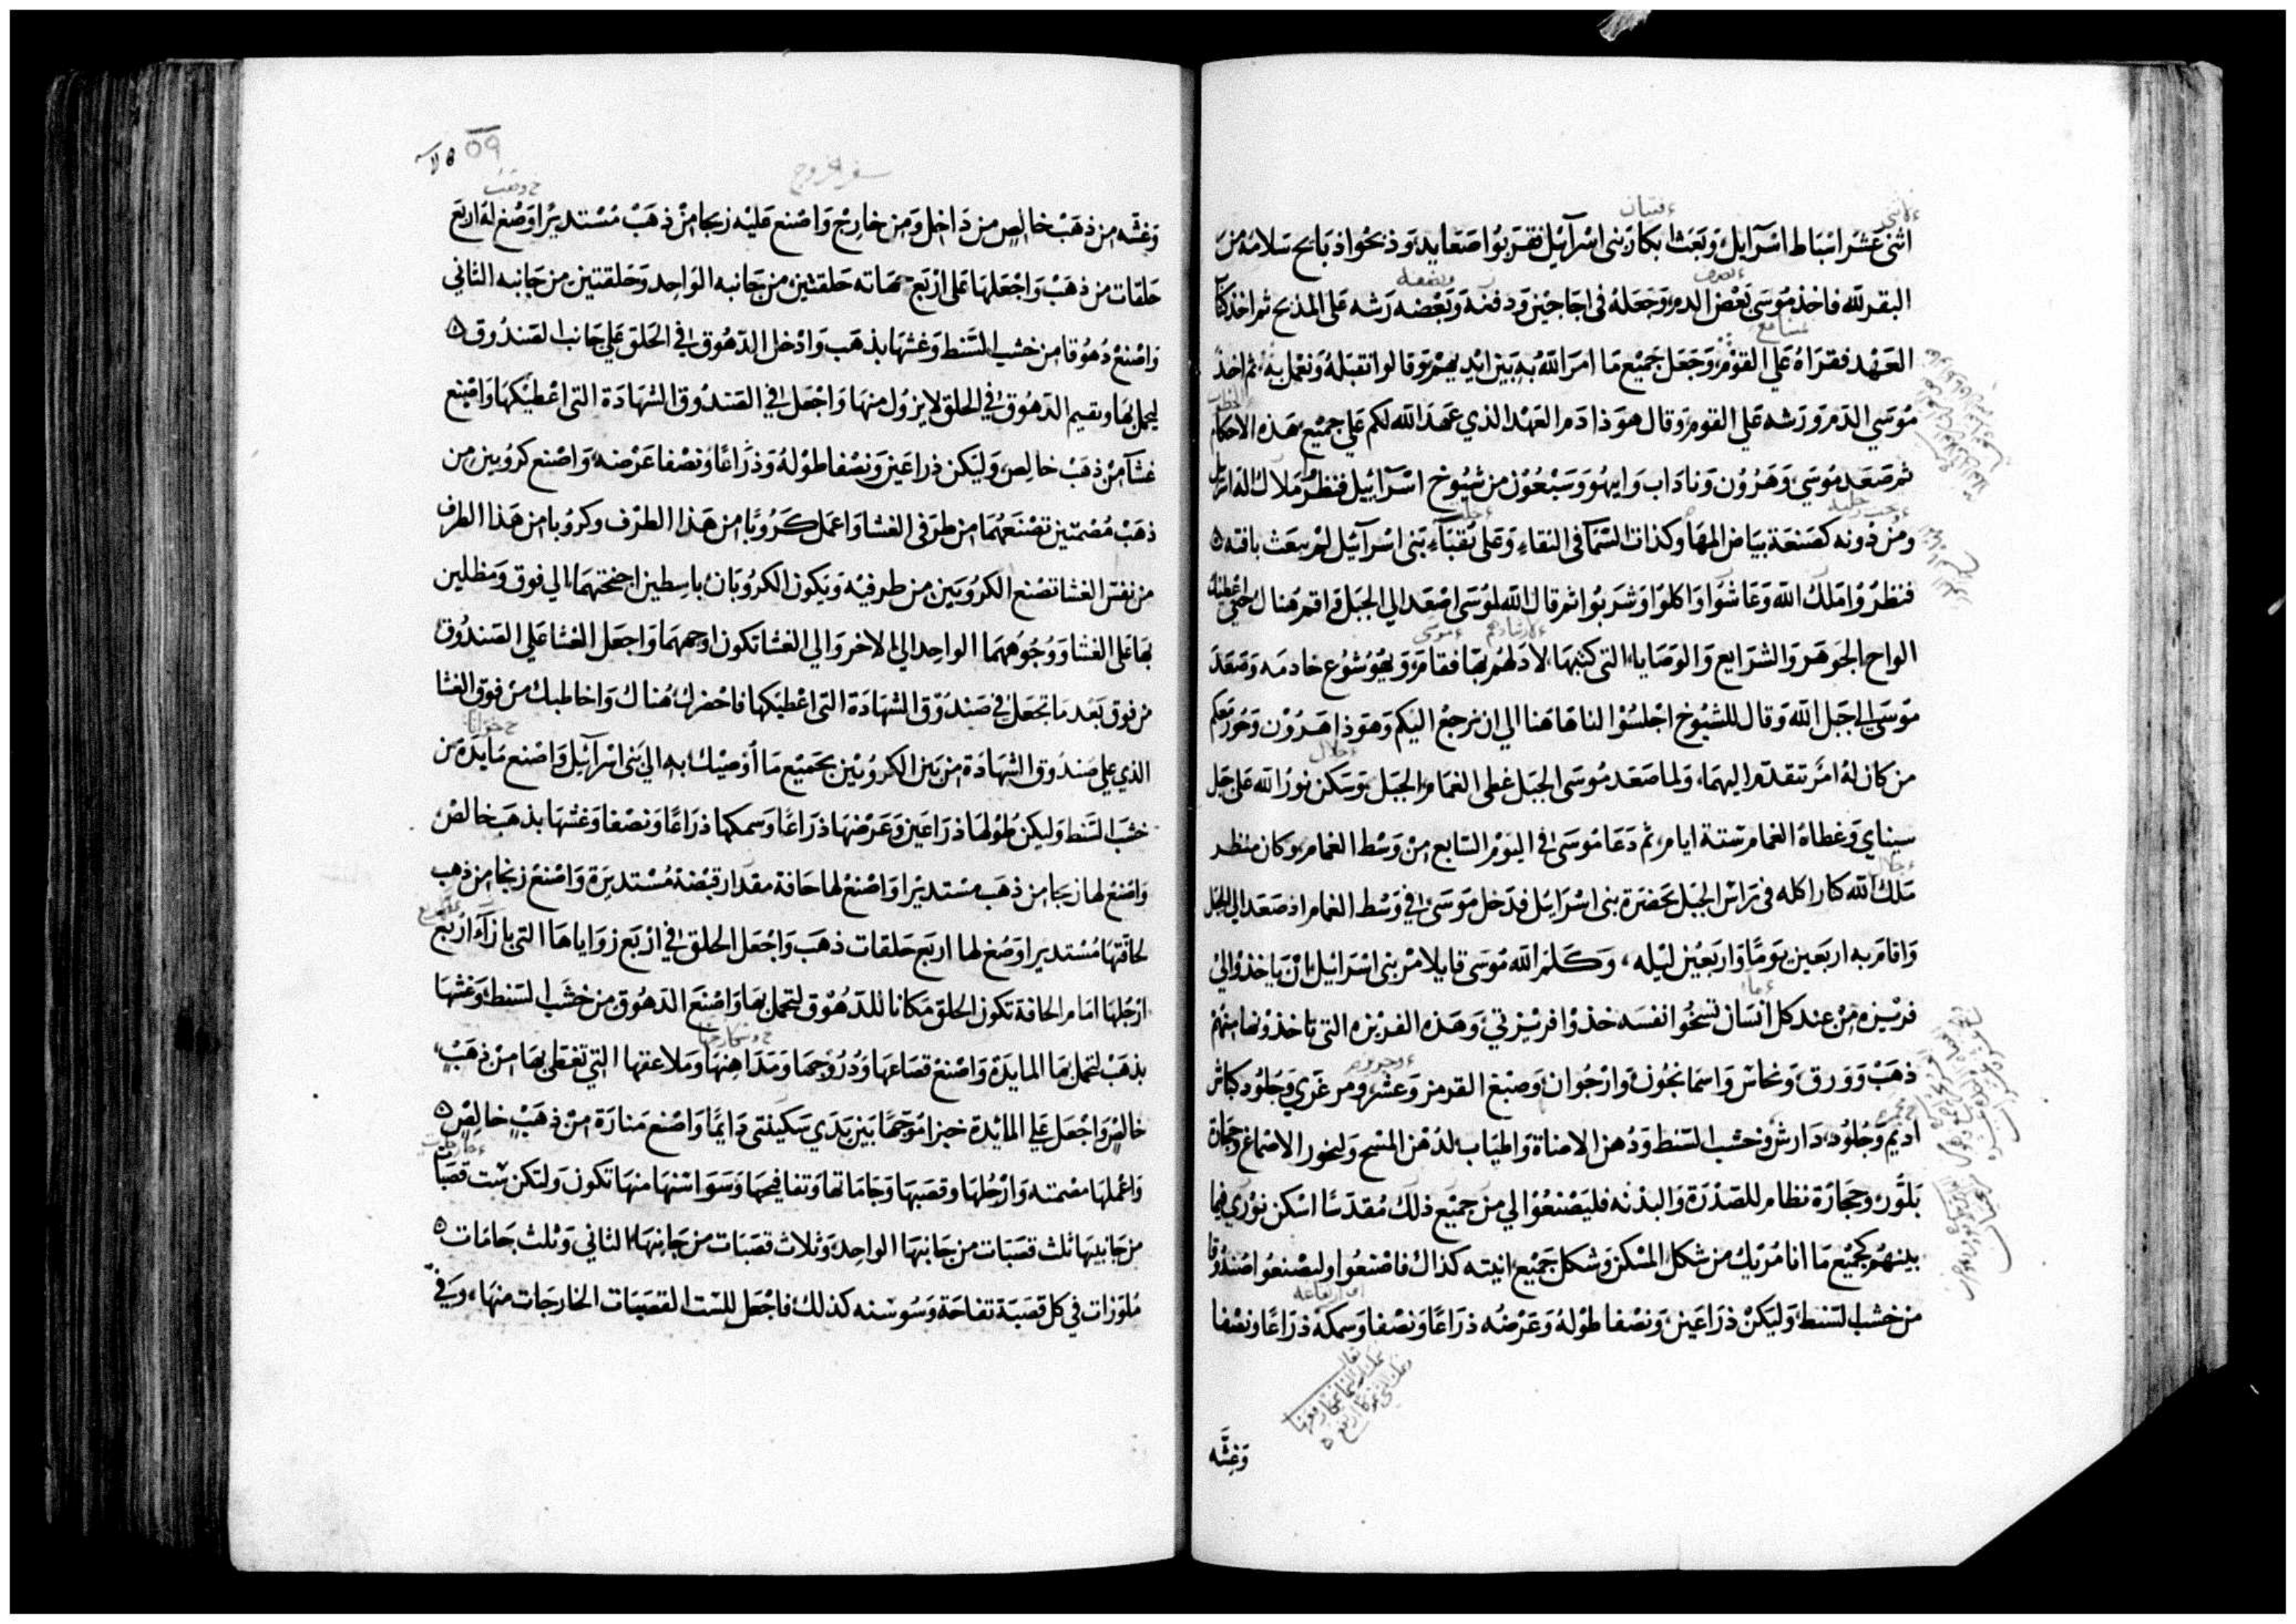 اثنى عَشرَ اسْبَاط اسْرَآيل وَبَعَث بكار بَنى اسْرآيل فقرَبُوا صَعَايد وَذبحُوا ذبايح سَلامَه مِنَ
البقر لله فاخذ مُوسَى بَعْض الدم وَجَعَلهُ فى اجَاجين وَدفنه وَبَعْضه رَشه عَلى المذبح ثم اخذ كتاب
العَهْد فقرَاهُ عَلي القوْم وَجَعَل جَميْع مَا امرَ اللهُ بهِ بَين ايْديهمْ وَقالوا نقبَلهُ وَنعْمل به ثم اخذ
مُوسَي الدَم وَرَشه عَلى القوم وَقال هوَذا دَم العَهْد الذي عَهدَ الله لكم عَلي جميْع هَذه الاحكام
ثم صَعَد مُوسَي وَهَرُوْن وَناداب وَابيهُو وَسَبْعُوْن من شيُوخ اسْرَآييل فنظرُ مَلاك اله اسرايل
وَمن دُونه كصَنعَة بيَاض المهَا وَكذات السَمآ فى النقاء وَعَلى نقبآء بَنى اسْرآييل لم يبعَث بافته ٥
فنظرُوا مَلك الله وَعَاشُوا وَاكلوا وَشرَبُوا ثم قال الله لموُسَى اصْعَد الي الجَبَل وَاقم هَناك حتي اعْطيك
الواح الجَوهَر وَالشرَايع وَالوَصَايا التى كتبهَا لادَلهُم بهَا فقامَ وَيهُوْشوُع خادمَه وَصَعَدَ
مُوسَي الي جَبَل الله وَقال للشيُوخ اجْلسُوْا لنا هَاهَنا الي ان نرجعْ اليكم وَهوَذا هَرُوْن وَحُور مَعَكم
من كان لهُ امْر تتقدّم اليهمَا، وَلما صَعَد مُوسَى الجَبَل غطى الغمَام الجَبَل وَسَكن نوُرُ الله عَلى جَبَل
سيناي وَغطاهُ الغمام ستة ايام، ثم دَعَا مُوسَى في اليَوْم السَابع مِنْ وَسْط الغمام، وكان منظر
مَلك الله كنار اكله فى رَاسْ الجَبَل بحَضرَة بنى اسْرَايْل فدَخل مُوسَى في وَسْط الغمام اذ صَعَد الي الجبَل
وَاقامَ به اربَعين يَومًا وَاربَعين ليْله، وَكَلمَ الله مُوسَى قايلا مُرْ بنى اسْرَائيل انْ يَاخذوُا لي
فرْيزه مِنْ عند كل انسَان تسخُو انفسَه خذوْا فريْزتي وَهَذه الفريْزه التى تاخذوْنها منهُمْ
ذهَبْ وَوَرق وَنحاس وَاسمَانجُون وَارْجُوان وَصبْغ القرمز وَعشر وَمرعَزي وَجُلوُد كباش
اديْم وَجُلوُد دَارش وَخشَب السَنط وَدُهن الاضاة وَاطيَاب لدُهْن المسْح وَلبخور الاصْمَاغ وَحجَارة
بَلوُّر وَحجَارَة نظام للصَدْرَة وَالبدْنه فليَصْنعُوْا لي منْ جميْع ذلك مُقدَسًا اسْكن نوْرَي فيمَا
بينهُم كجميْع مَا انا مُريْك من شكل المسْكن وَشكل جَميْع انيته كذاك فاصْنعُوا وليصْنعُوا صُندُوْقا
منْ خشب السَنط وَليَكنْ ذرَاعَين وَنصْفا طوْلهُ وَعَرْضُه ذرَاعًا وَنصْفا وَسمكهُ ذرَاعًا وَنصْفا
وَغشّه
سفر الخروج
٥٩
وَغشّه من ذهَبْ خالِصٍ من دَاخِل وَمن خارِج وَاصْنع عَليْه زيجا منْ ذهَبْ مُسْتديْرا وَصُغ لهُ اربَع
حَلقات من ذهَبْ وَاجْعَلهَا عَلى ارْبَع جهَاته حَلقتيْن من جَانبه الوَاحِد وَحَلقتين من جَانِبه الثاني
وَاصْنعْ دُهُوقا من خشب السَنط وَغشهَا بذهَب وَادْخل الدّهُوق في الحَلق عَلي جَانب الصَندُوق ٥
ليحمل بهَا وَتقيم الدّهُوق في الحلق لا يزوُل منهَا وَاجْعَل في الصَندُوق الشهَادَة التى اعْطيكهَا وَاصْنع
غشآ منْ ذهَبْ خالِصٍ، وَليَكن ذراعَين وَنصْفا طوْلهُ وَذرَاعًا وَنصْفا عَرْضه، وَاصْنع كرُوبين من
ذهَبْ مُصْمتين تصْنعَهُمَا من طرَفى الغشا وَاعمَل كَرُوبًا من هَذا الطرَف وكروُبا من هَذا الطرف
من نفسْ الغشا تصْنع الكرُوبَين من طرفيْه وَيَكون الكرُوبَان باسِطين اجنحتهمَا الي فوق وَمظلين
بهَا عَلى الغشا وَوُجُوْههمَا الواحِد الي الاخر وَالي الغشا تكون اوجههمَا وَاجعَل الغْشا عَلي الصَندُوق
من فوق بَعْد مَا تجعَل في صَندُوْق الشهَادَة التى اعْطيَكها فاحْضرك هُناك وَاخاطبك منْ فوق الغشا
الذي علي صَندُوق الشهَادَة من بَين الكرُوبيْن بجَميْع مَا أوْصيْك به الي بَنى اسْرآئيل وَاصْنع مَايدَة من
خشبَ السَنط وَليكن طوُلهَا ذرَاعَين وَعَرْضهَا ذرَاعًا وَسمكها ذرَاعًا وَنصْفا وَغشهَا بذهَب خالصْ
وَاصْنع لها زيجا من ذهَب مستديْرا وَاصْنعْ لها حَافة مقدَار قبْضة مُسْتديرَة وَاصْنعْ زيجا من ذهب
لحافتهَا مُسْتديرا وَصُغ لها اربَع حَلقات ذهَب وَاجْعَل الحلق في ارْبَع زوَاياهَا التى بازآء ارْبَع
ارْجُلهَا امَام الحافة تكون الحلق مَكانا للدّهُوْق لتحمل بهَا وَاصْنعَ الدّهُوق من خشَب السَنط وَغشهَا
بذهَبْ لتحمل بهَا المايدَة وَاصْنعْ قصَاعهَا وَدُرُوْجهَا وَمَدَاهِنهَا وَملاعقها التي تغطى بهَا منْ ذهَبْ
خالصْ وَاجْعَل عَلي المائِدة خبزا مُوَجّهًا بَين يَدَي سَكيْنتي دَايمًا وَاصْنع مَنارَة منْ ذهَبْ خالِصٍ ٥
وَاعْملهَا مصْمته وَارْجُلهَا وَقصَبهَا وَجَامَاتها وَتفافيحهَا وَسَوَاسْنهَا منهَا تكون وَلتكن ستّ قصَبَات
من جَانبيهَا ثلث قصَبَات من جَانبهَا الواحِد وَثلاث قصَبَات من جَانِبهَا الثاني وَثلث جَامَات ٥
مُلوّزات في كل قصَبَة تفاحَة وَسُوسْنه كذلكَ فاجْعَل للسّت القصَبَات الخارجَات منهَا، وَفي